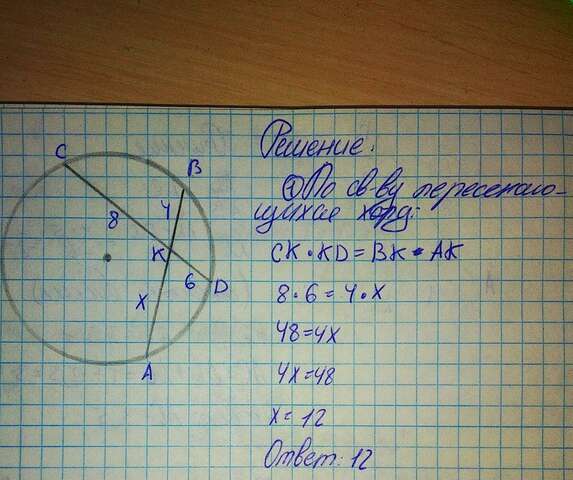 C
B
8
4
K
6
D
X
A
Решение:
① По св-ву пересекаю-
щихся хорд:
CK · KD = BK · AK
8 · 6 = 4 · X
48 = 4X
4X = 48
X = 12
Ответ: 12